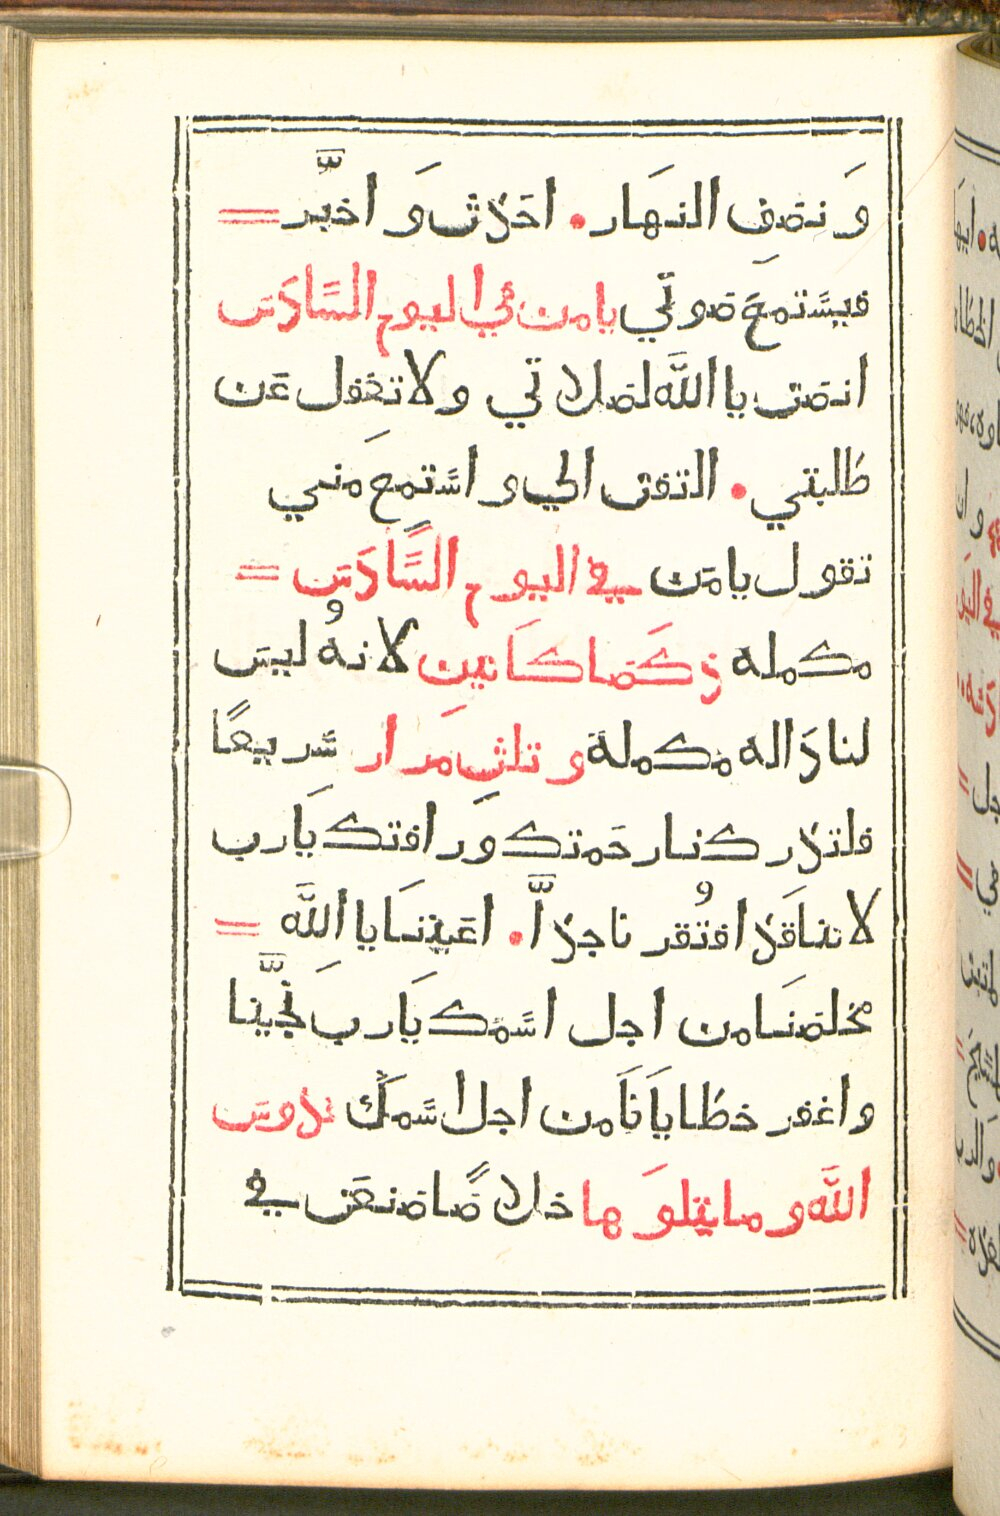 وَ نصفِ النهَار. احَدث وَ اخبَّر =
فيسَّتمعَ صوتي يا من في اليوم السَّادَسَ
انصت يا اللَّه لصلاتي ولا تغفل عَن
طلبتي. التفت الي و اسَّتمعَ مني
تقول يا مَن في اليوم السَّادَسَ =
مكمله ذكصَاكَانين لانهُ ليسَ
لنا دَاله مكملة و تلث مَرار سَّريعًا
فلتدركنا رحَمتك وَ رافتك يَارب
لاننَا قد افتُقرنا جدّاً. اعَيننَا يا اللَّه =
مخلصنَا من اجل اسَّمك يَارب نجَّينا
واغفر خطايَانَا من اجل اسَّمكَ قدوسَ
اللَّه و ما يتلوَها خلاصًا صنعَت في